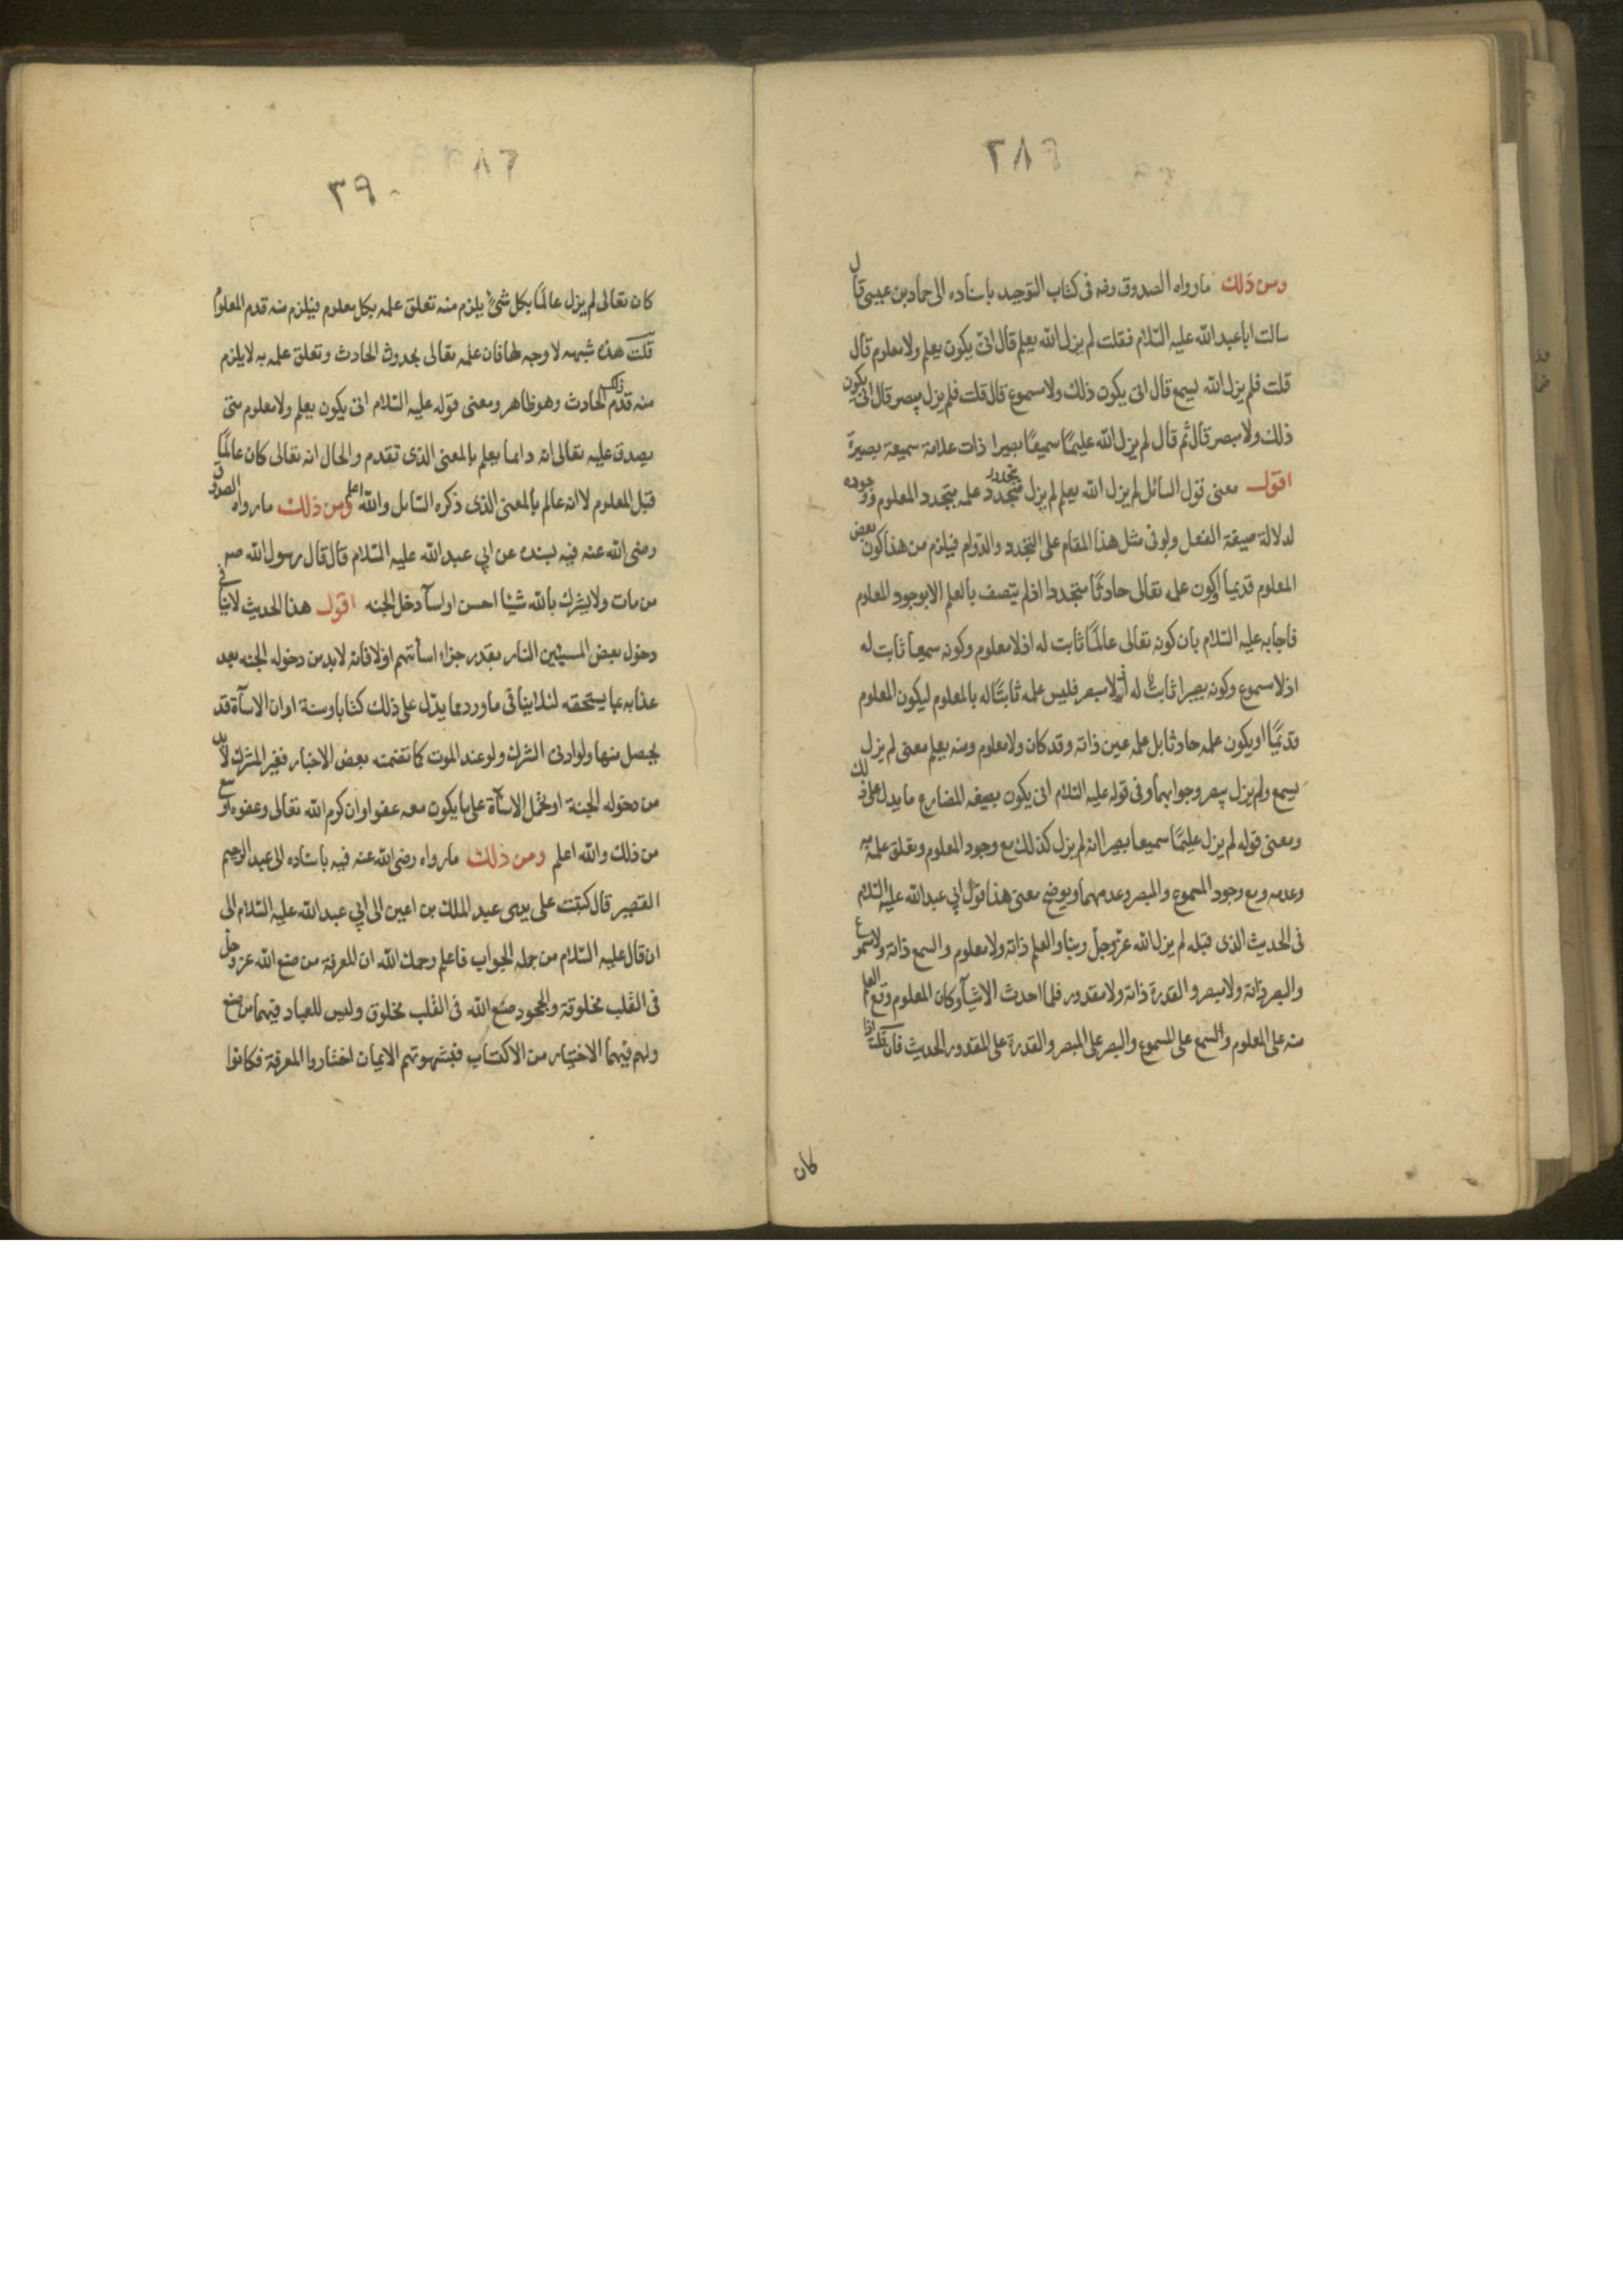 ٢٨٩
ومن ذلك ما رواه الصدوق ره فى كتاب التوحيد باسناده الى حماد بن عيسى قال
سالت ابا عبد الله عليه السّلام فقلت لم يزل الله يعلم قال انّى يكون يعلم ولا معلوم قال
قلت فلم يزل الله يسمع قال انى يكون ذلك ولا مسموع قال قلت فلم يزل يبصر قال انى يكون
ذلك ولا مبصر قال ثم قال لم يزل الله عليمًا سميعًا بصيرا ذات علامة سميعة بصيرة
اقول معنى قول السائل لم يزل الله يعلم لم يزل يتجدد علمه بتجدد المعلوم ووجوده
لدلالة صيغة الفعل ولو فى مثل هذا المقام على التجدد والدّوام فيلزم من هذا كون بعض
المعلوم قديما او كون علمه تعالى حادثًا متجددا اذ لم يتصف بالعلم الا بوجود المعلوم
فاجابه عليه السّلام بان كونه تعالى عالمًا ثابت له اذ لا معلوم وكونه سميعا ثابت له
اذ لا مسموع وكونه بصيرا ثابت له اذ لا مبصر فليس علمه ثابتًا له بالمعلوم ليكون المعلوم
قديمًا او يكون علمه حادثا بل علمه عين ذاته وقد كان ولا معلوم ومنه يعلم معنى لم يزل
يسمع ولم يزل يبصر وجوابهما وفى قوله عليه السّلام انى يكون بصيغه المضارع ما يدل على ذلك
ومعنى قوله لم يزل عليمًا سميعا بصيرا انه لم يزل كذلك مع وجود المعلوم وتعلق علمه به
وعدمه ومع وجود المسموع والمبصر وعدمهما ويوضح معنى هذا قول ابي عبد الله عليه السّلام
فى الحديث الذى قبله لم يزل الله عزّ وجلّ ربنا والعلم ذاته ولا معلوم والسمع ذاته ولا مسموع
والبصر ذاته ولا مبصر والقدرة ذاته ولا مقدور فلما احدث الاشيآء وكان المعلوم وقع العلم
منه على المعلوم والسمع على المسموع والبصر على المبصر والقدرة على المقدور الحديث فان قلت اذا
كان
٣٩٠
كان تعالى لم يزل عالمًا بكل شئ يلزم منه تعلق علمه بكل معلوم فيلزم منه قدم المعلوم
قلت هذه شبهه لا وجه لها فان علمه تعالى بحدوث الحادث وتعلق علمه به لا يلزم
منه قدم ذلك الحادث وهو ظاهر ومعنى قوله عليه السّلام انى يكون يعلم ولا معلوم متى
يصدق عليه تعالى انه دايما يعلم بالمعنى الذى تقدم والحال انه تعالى كان عالمًا
قبل المعلوم لا انه عالم بالمعنى الذى ذكره السّائل والله اعلم ومن ذلك ما رواه الصدوق
رضى الله عنه فيه بسنده عن ابي عبد الله عليه السّلام قال قال رسول الله صم
من مات ولا يشرك بالله شيئا احسن او اسآء دخل الجنه اقول هذا الحديث لا ينافى
دخول بعض المسيئين النار بقدر جزاء اسائتهم اولا فانه لابد من دخوله الجنه بعد
عذابه بما يستحقه لئلا ينافى ما ورد مما يدّل على ذلك كتابا وسنة او ان الاسآة قد
يحصل منها ولو ادنى الشرك ولو عند الموت كما تضمنته بعض الاخبار فغير المشرك لابد
من دخوله الجنة او تحمل الاسآة على ما يكون معه عفو او ان كرم الله تعالى وعفوه اوسع
من ذلك والله اعلم ومن ذلك ما رواه رضى الله عنه فيه باسناده الى عبد الرحيم
القصير قال كتبت على يدى عبد الملك بن اعين الى ابي عبد الله عليه السّلام الى
ان قال عليه السّلام من جمله الجواب فاعلم رحمك الله ان المعرفة من صنع الله عز وجل
فى القلب مخلوقة والجحود صنع الله فى القلب مخلوق وليس للعباد فيهما من صنع
ولهم فيهما الاختيار من الاكتساب فبشهوتهم الايمان اختاروا المعرفة فكانوا